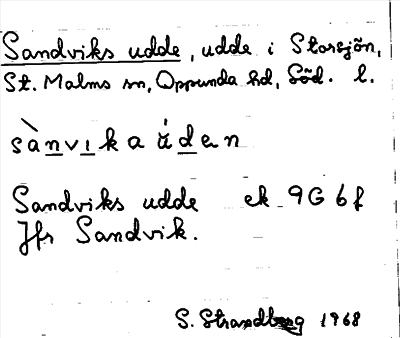 Sandviks udde, udde i Storsjön,
St. Malms sn, Oppunda hd, Söd. l.
sànvika u̇̆den
Sandviks udde ek 9G 6f
Jfr Sandvik.
S. Strandberg 1968